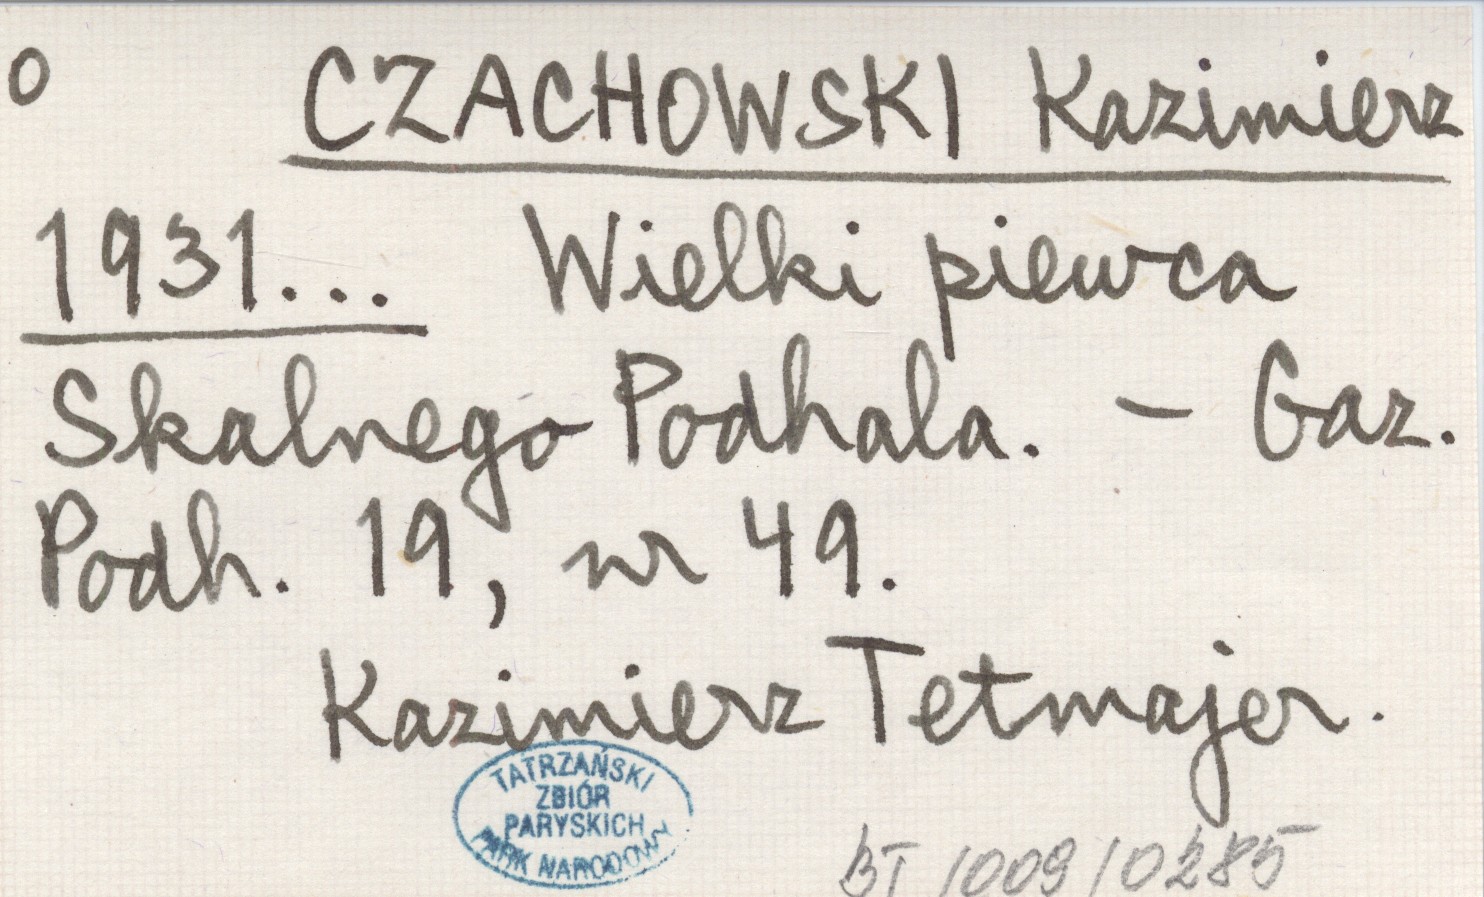 o CZACHOWSKI Kazimierz
1931... Wielki piewca
Skalnego Podhala. – Gaz.
Podh. 19, nr 49.
Kazimierz Tetmajer.
TATRZAŃSKI
ZBIÓR
PARYSKICH
PARK NARODOWY
BT /009/0285